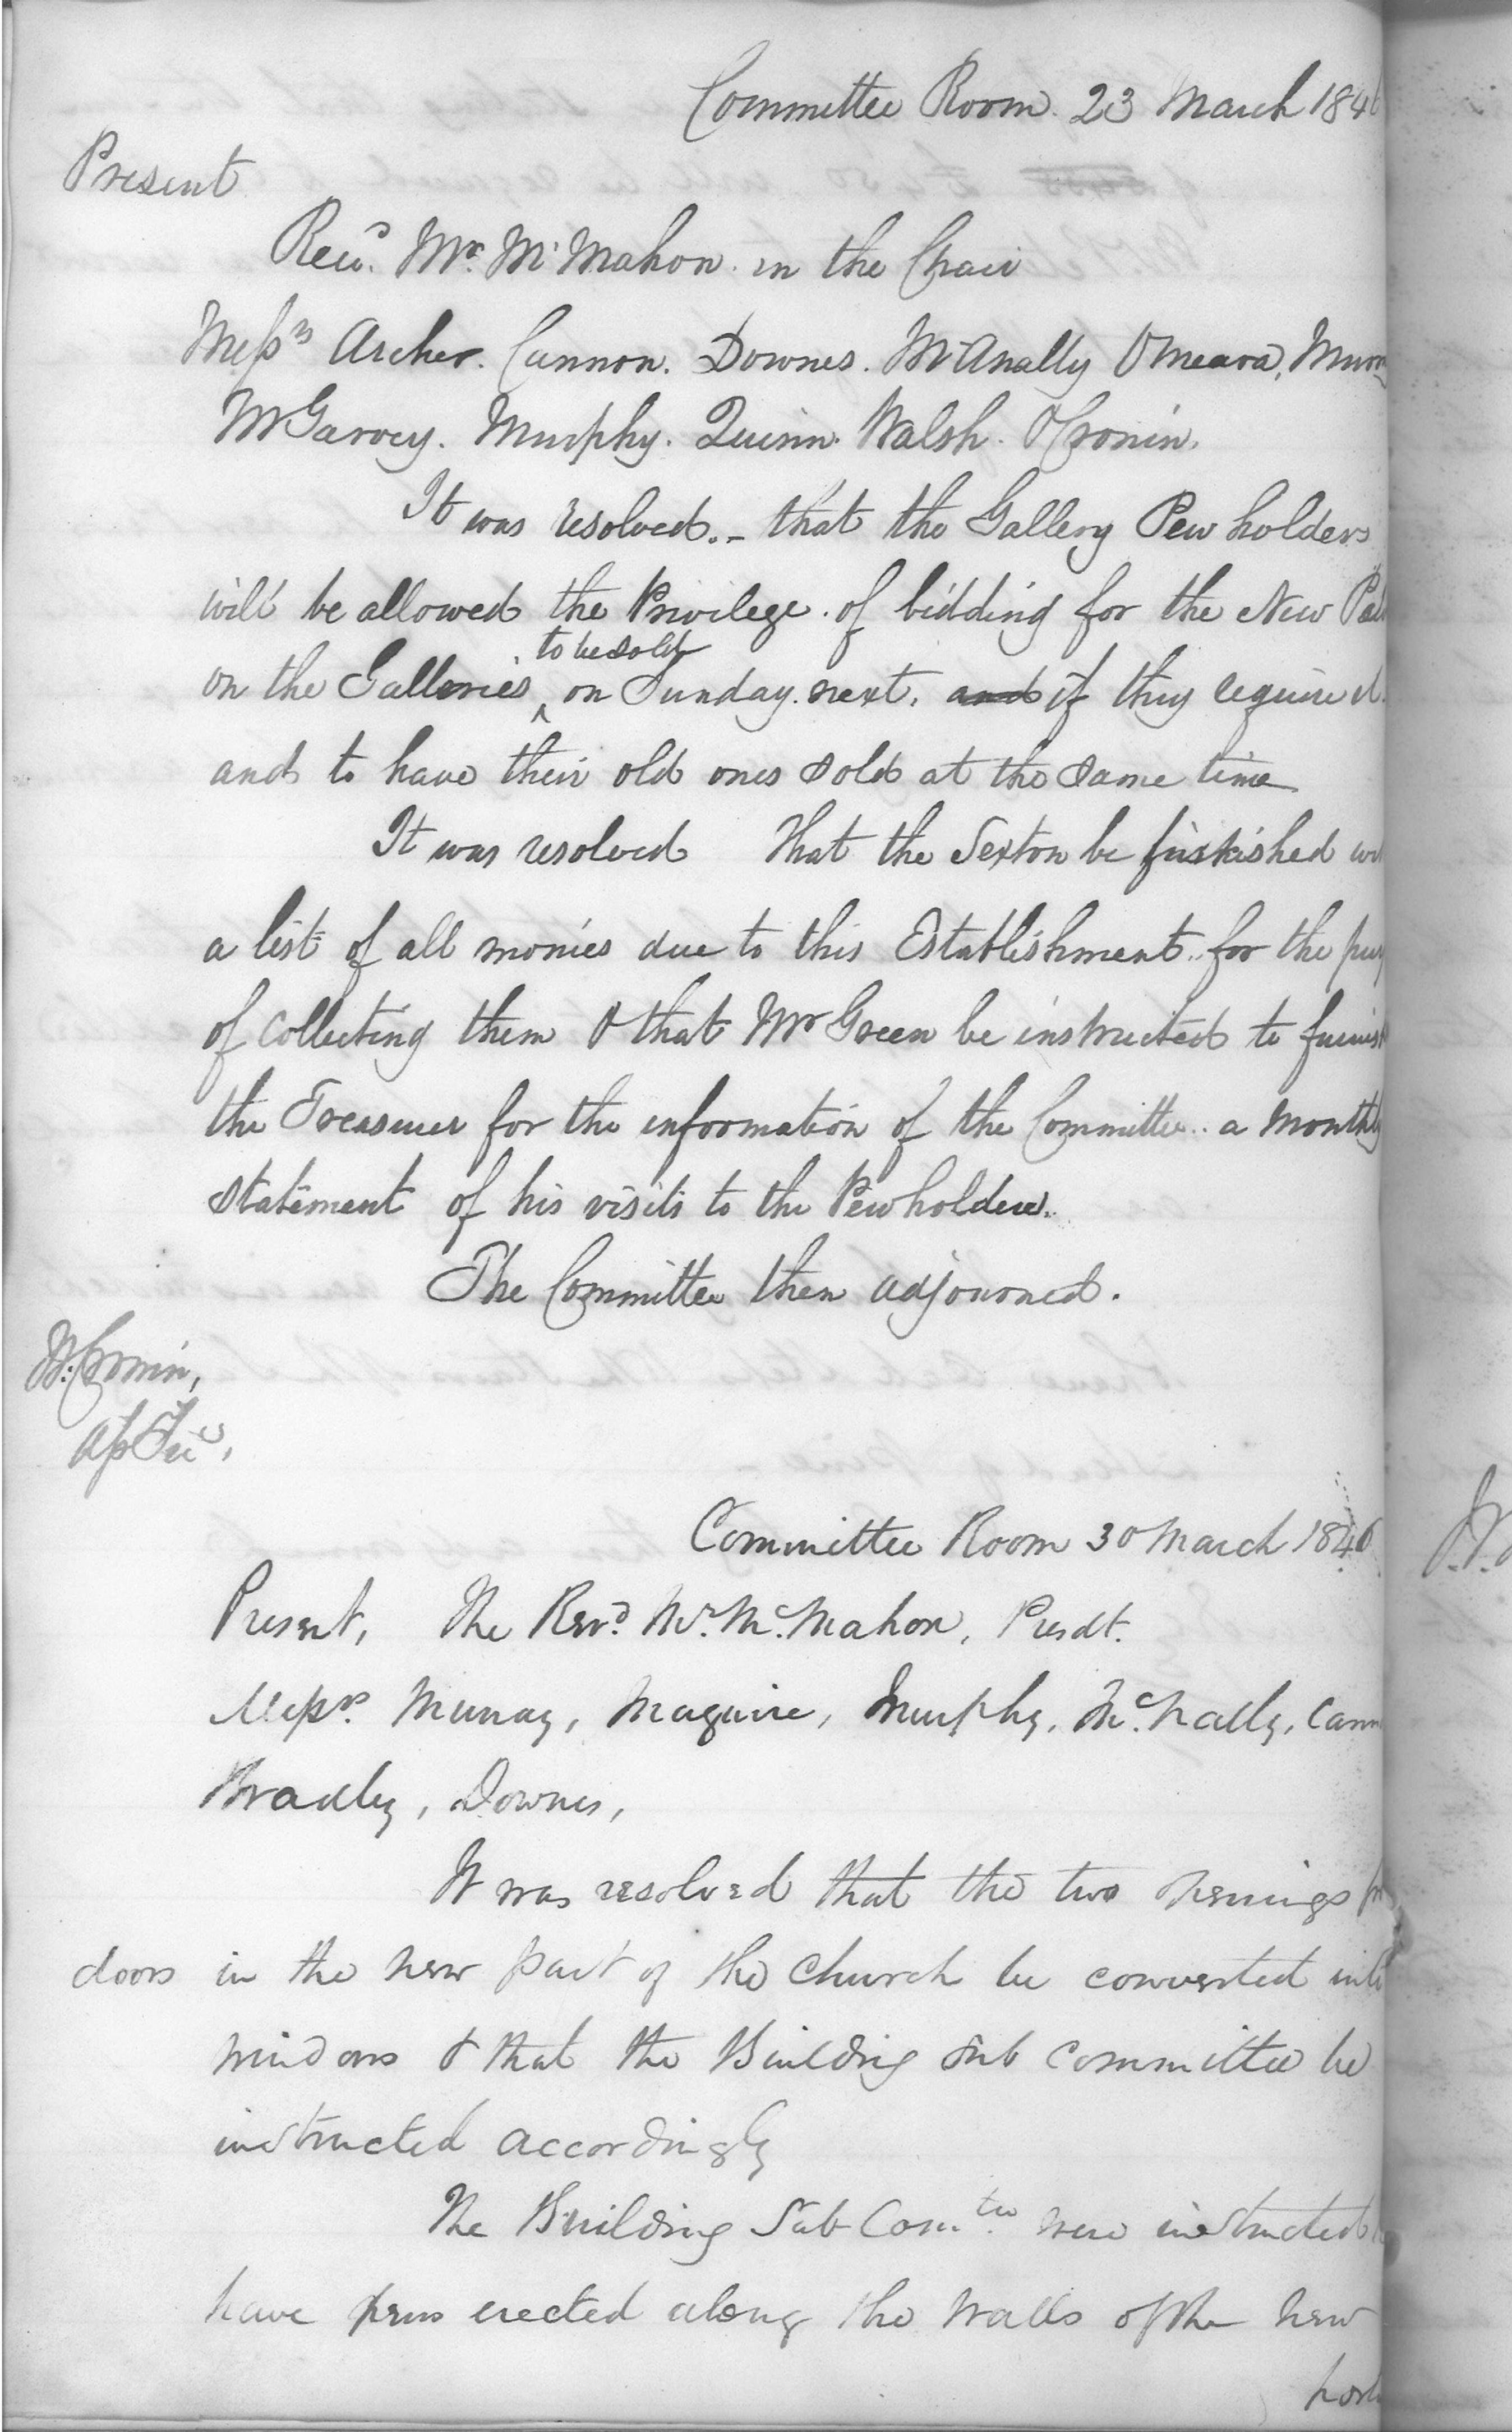 Committee Room. 23 March 184
Present
Revd. Mr. McMahon. in the Chair
Messrs Archer. Cannon. Downes. McAnally O'Meara, Murray
McGarvey. Murphy. Quinn. Walsh. & Cronin.
It was resolved. - that the Gallery Pew holders
will be allowed the Privilege. of bidding for the New
on the Galleries ^ to be sold on Sunday. next. and if they require it.
and to have their old ones sold at the same time
It was resolved That the Sexton be furnished
a list of all monies due to this Establishment. for the
of collecting them & that Mr Green be instructed to furnish
the Treasurer for the information of the Committee.. a Monthly
statement of his visits to the Pewholders.
The Committee then adjourned.
Cronin,
Committee Room 30 March 1846
Present, The Revd. Mr. McMahon, Presdt.
Messrs. Murray, Maguire, Murphy, McNally, Cann
Bradley, Downes,
It was resolved that the two openings for
doors in the new part of the Church be converted into
windows & that the Building Sub Committee be
instructed accordingly
The Building Sub-Comtee were instructed
have pews erected along the walls of the new